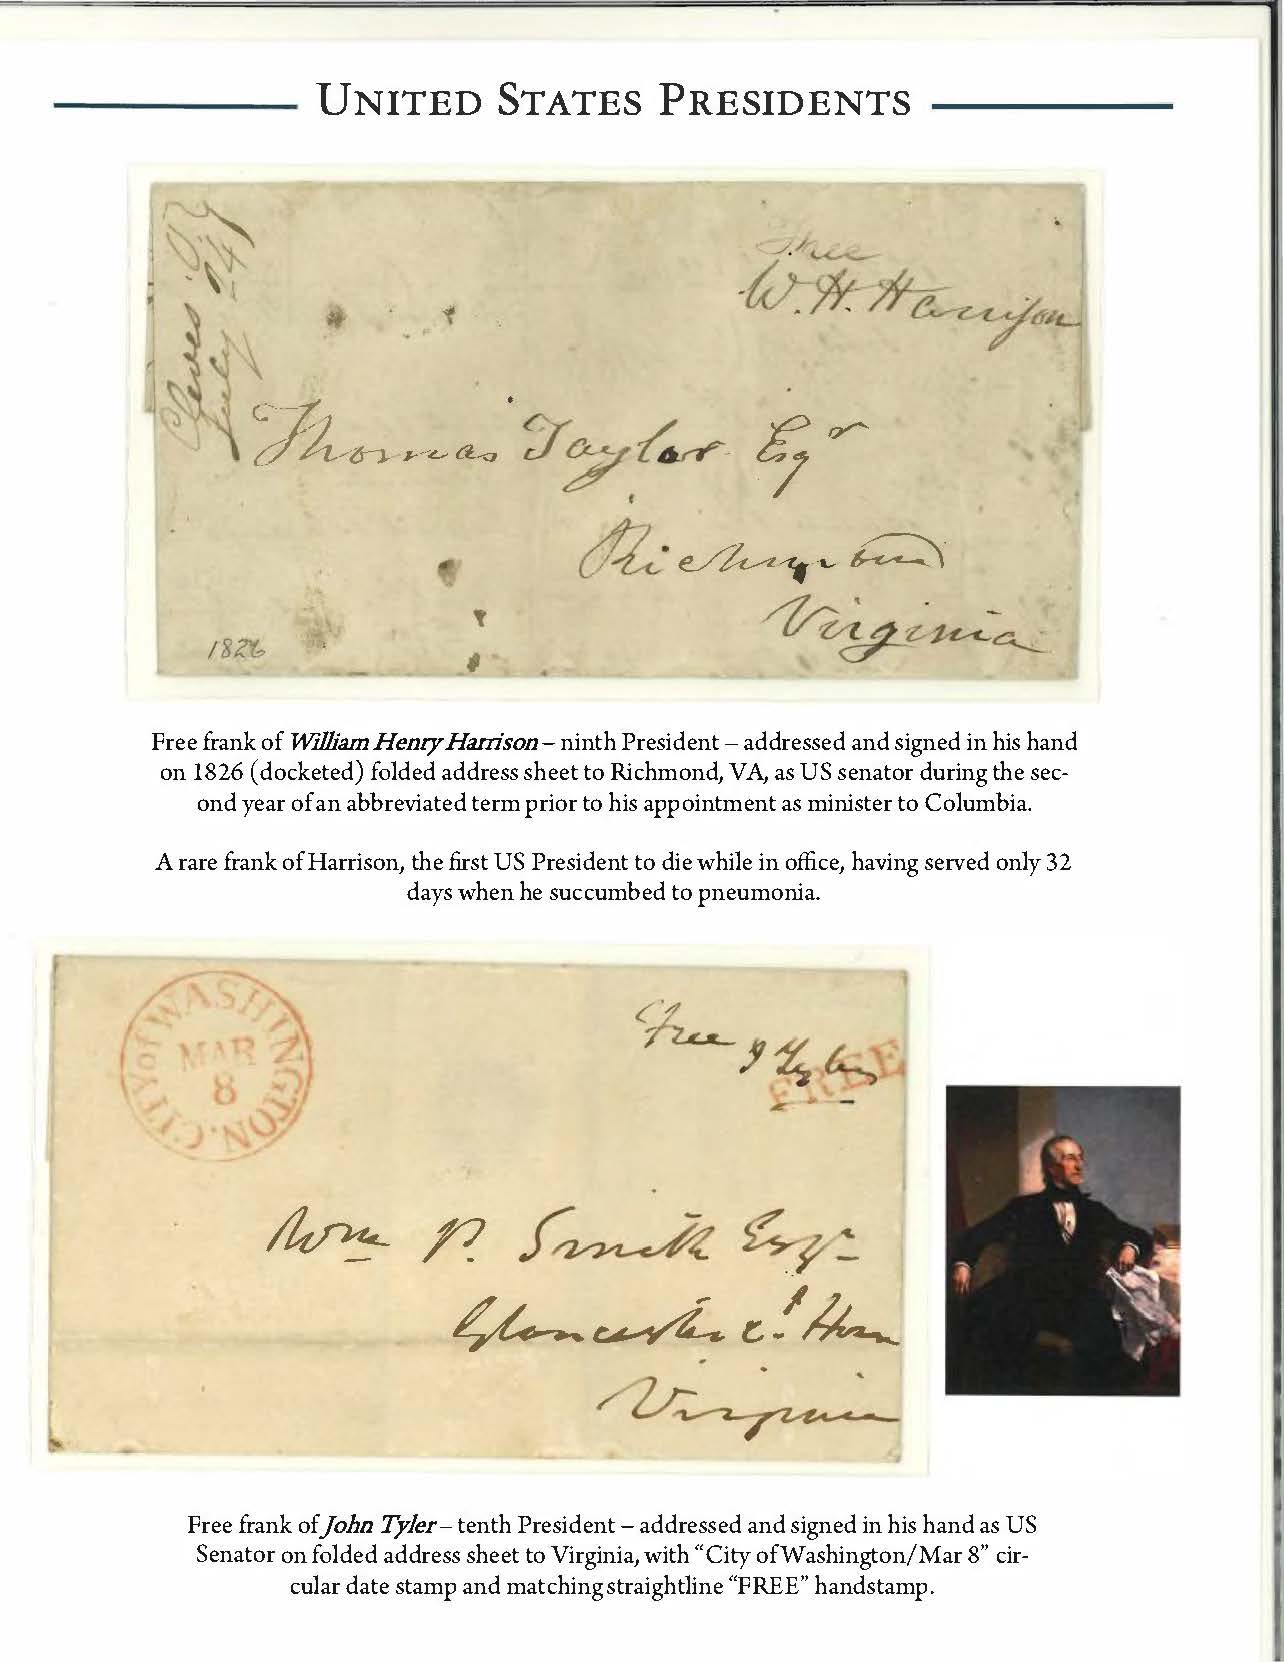 UNITED STATES PRESIDENTS
Cleves O.
July 24
Free
W. H. Harrison
Thomas Taylor Esqr
Richmond
Virginia
1826
Free frank of William Henry Harrison – ninth President – addressed and signed in his hand
on 1826 (docketed) folded address sheet to Richmond, VA, as US senator during the sec-
ond year of an abbreviated term prior to his appointment as minister to Columbia.
A rare frank of Harrison, the first US President to die while in office, having served only 32
days when he succumbed to pneumonia.
CITY of WASHINGTON.
MAR
8
Free J Tyler
FREE
Wm P. Smith Esqr
Gloucester Ct. House
Virginia
Free frank of John Tyler – tenth President – addressed and signed in his hand as US
Senator on folded address sheet to Virginia, with “City of Washington/Mar 8” cir-
cular date stamp and matching straightline “FREE” handstamp.